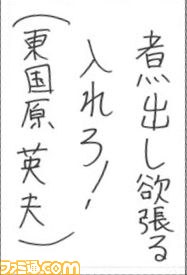 煮出し欲張る
入れろ！
(東国原 英夫)
ファミ通.com